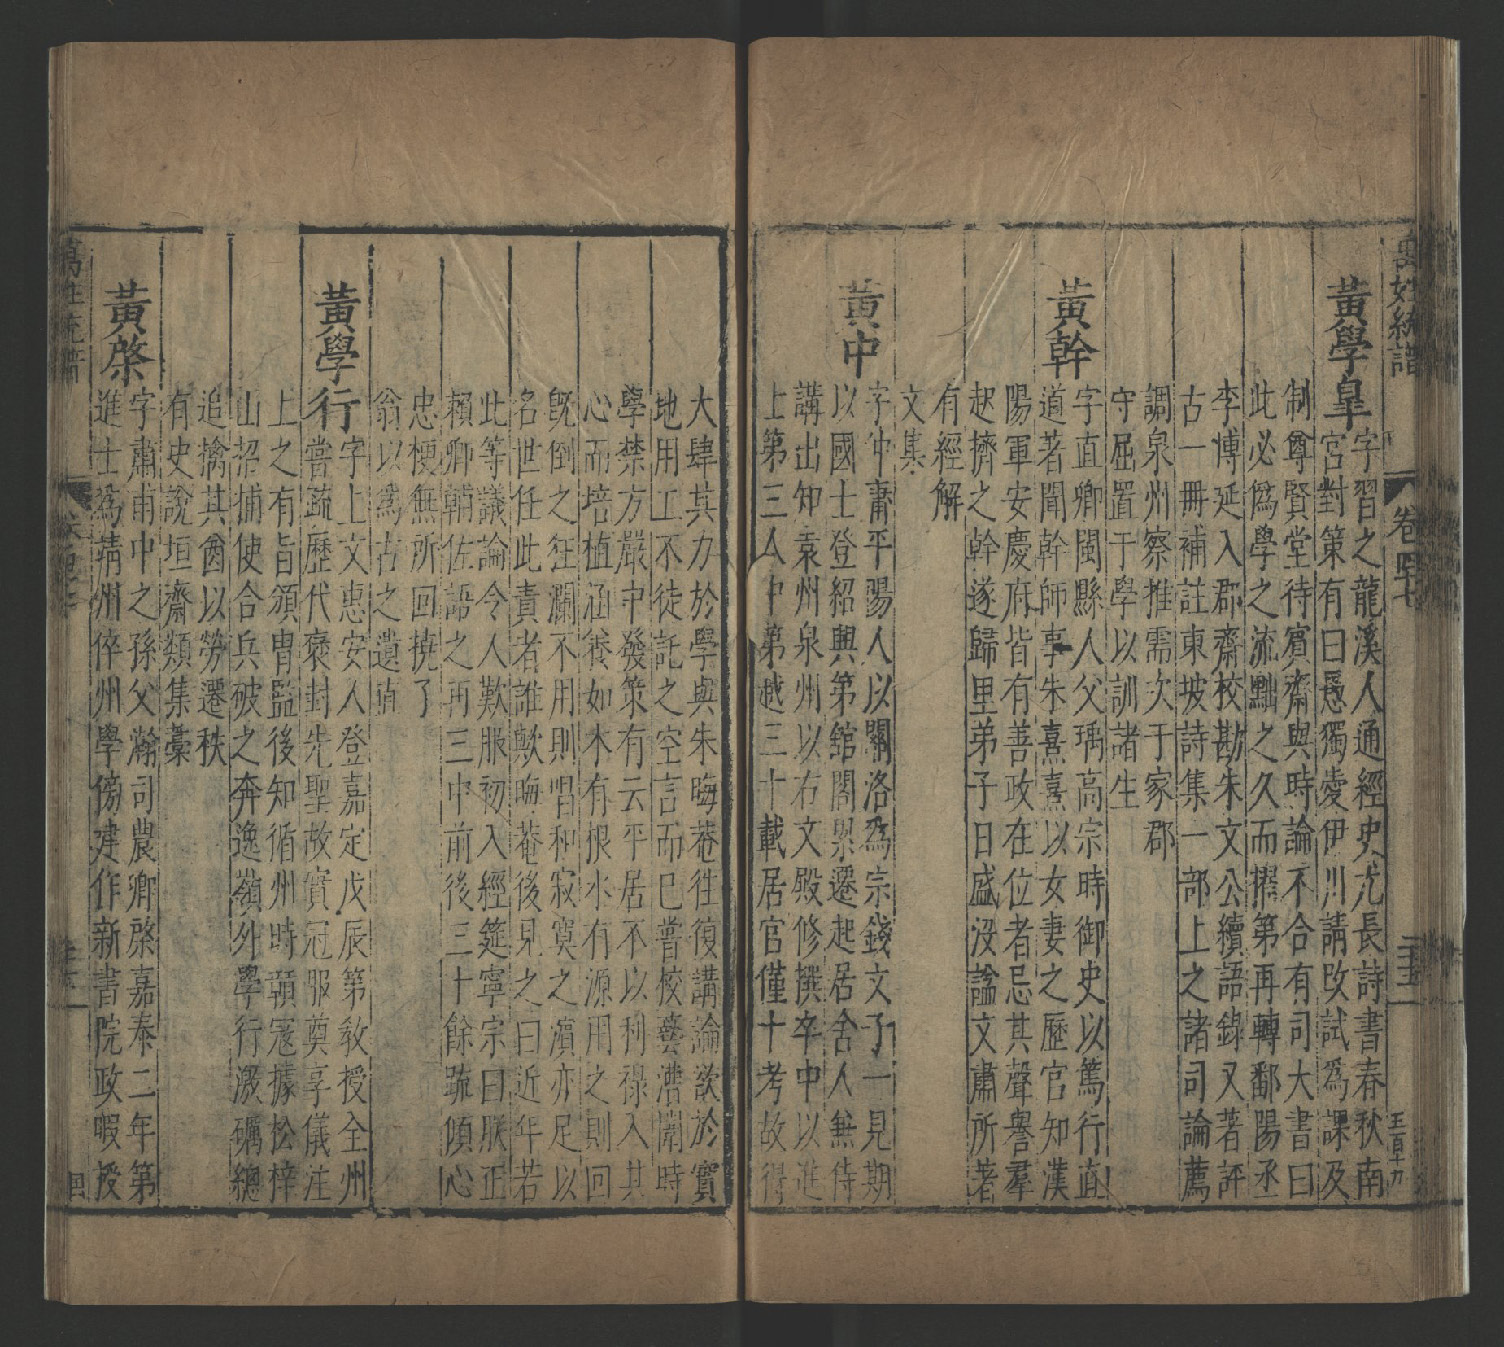 萬姓統譜
卷四七
黃學皐
字習之龍溪人通經史尤長詩書春秋南
宮對策有曰愚獨愛伊川請改試爲課及
制尊賢堂待賓齋與時論不合有司大書曰
此必僞學之流黜之久而擢第再轉鄱陽丞
李博延入郡齋校勘朱文公續語錄又著評
古一冊補註東坡詩集一部上之諸司論薦
調泉州察推需次于家郡
守屈置于學以訓諸生
黃幹
字直卿閩縣人父瑀高宗時御史以篤行直
道著聞幹師事朱熹熹以女妻之歷官知漢
陽軍安慶府皆有善政在位者忌其聲譽羣
起擠之幹遂歸里弟子日盛沒諡文肅所著
有經解
文集
黃中
字仲庸平陽人以關洛爲宗錢文子一見期
以國士登紹興第舘閣累遷起居舍人無侍
講出知袁州泉州以右文殿修撰卒中以進
上第三人中第越三十載居官僅十考故得
大肆其力於學與朱晦菴徃復講論欲於實
地用工不徒託之空言而巳嘗校藝漕闈時
學禁方嚴中發策有云平居不以利祿入其
心而培植涵養如木有根水有源用之則回
旣倒之狂瀾不用則唱和寂寞之濱亦足以
名世任此責者誰歟晦菴後見之曰近年若
此等議論令人歎服初入經筵寧宗曰朕正
賴卿輔佐語之再三中前後三十餘疏傾心
忠梗無所回撓了
翁以爲古之遺直
黃學行
字上文惠安人登嘉定戊辰第敎授全州
嘗疏歷代褒封先聖故實冠服奠享儀注
上之有旨頒冑監後知循州時贛寇據松梓
山招捕使合兵破之奔逸嶺外學行激礪總
追擒其酋以勞遷秩
有史說垣齋類集藁
黃棨
字肅甫中之孫父瀚司農卿棨嘉泰二年第
進士爲靖州倅州學傍建作新書院政暇授
萬姓統譜